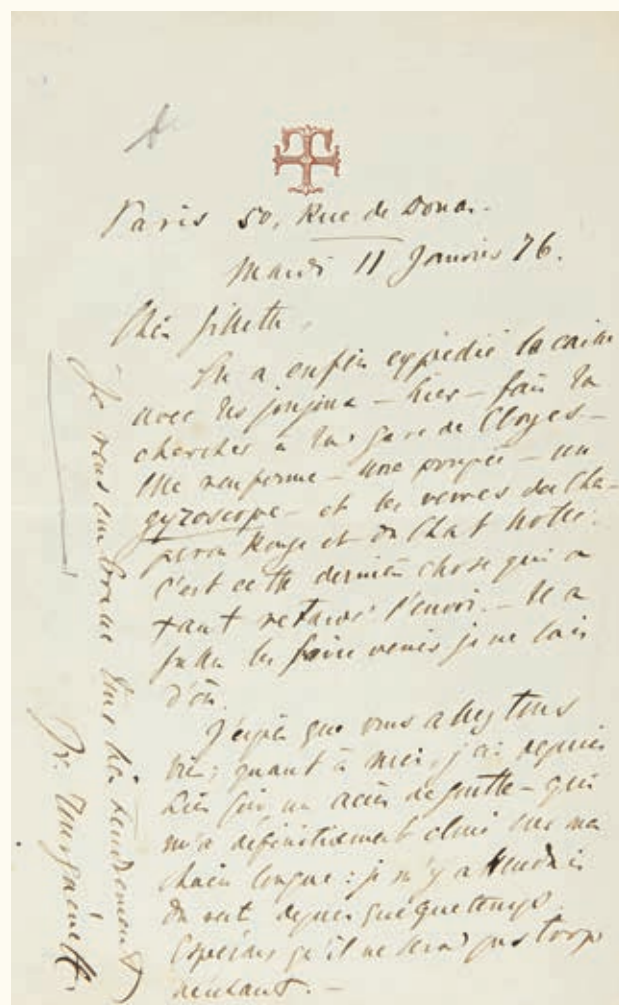 Paris 50, Rue de Douai.
Mardi 11 Janvier 76.
Chère
On a enfin expédié la caisse
avec les joujoux – hier – fais la
chercher à la gare de Cloyes –
Elle renferme – une poupée – un
gyroscope – et les verres du Cha-
peron Rouge et du Chat botté.
C'est cette dernière chose qui a
tant retardé l'envoi. – Il a
fallu les faire venir je ne sais
d'où.
J'espère que vous allez tous
bien; quant à moi, j'ai depuis
hier soir un accès de goutte – qui
m'a définitivement cloué sur ma
chaise longue: je m'y attendais
du reste depuis quelque temps.
Espérons qu'il ne sera pas trop
–
Je vous embrasse tous très tendrement
Iv. Tourguéneff.